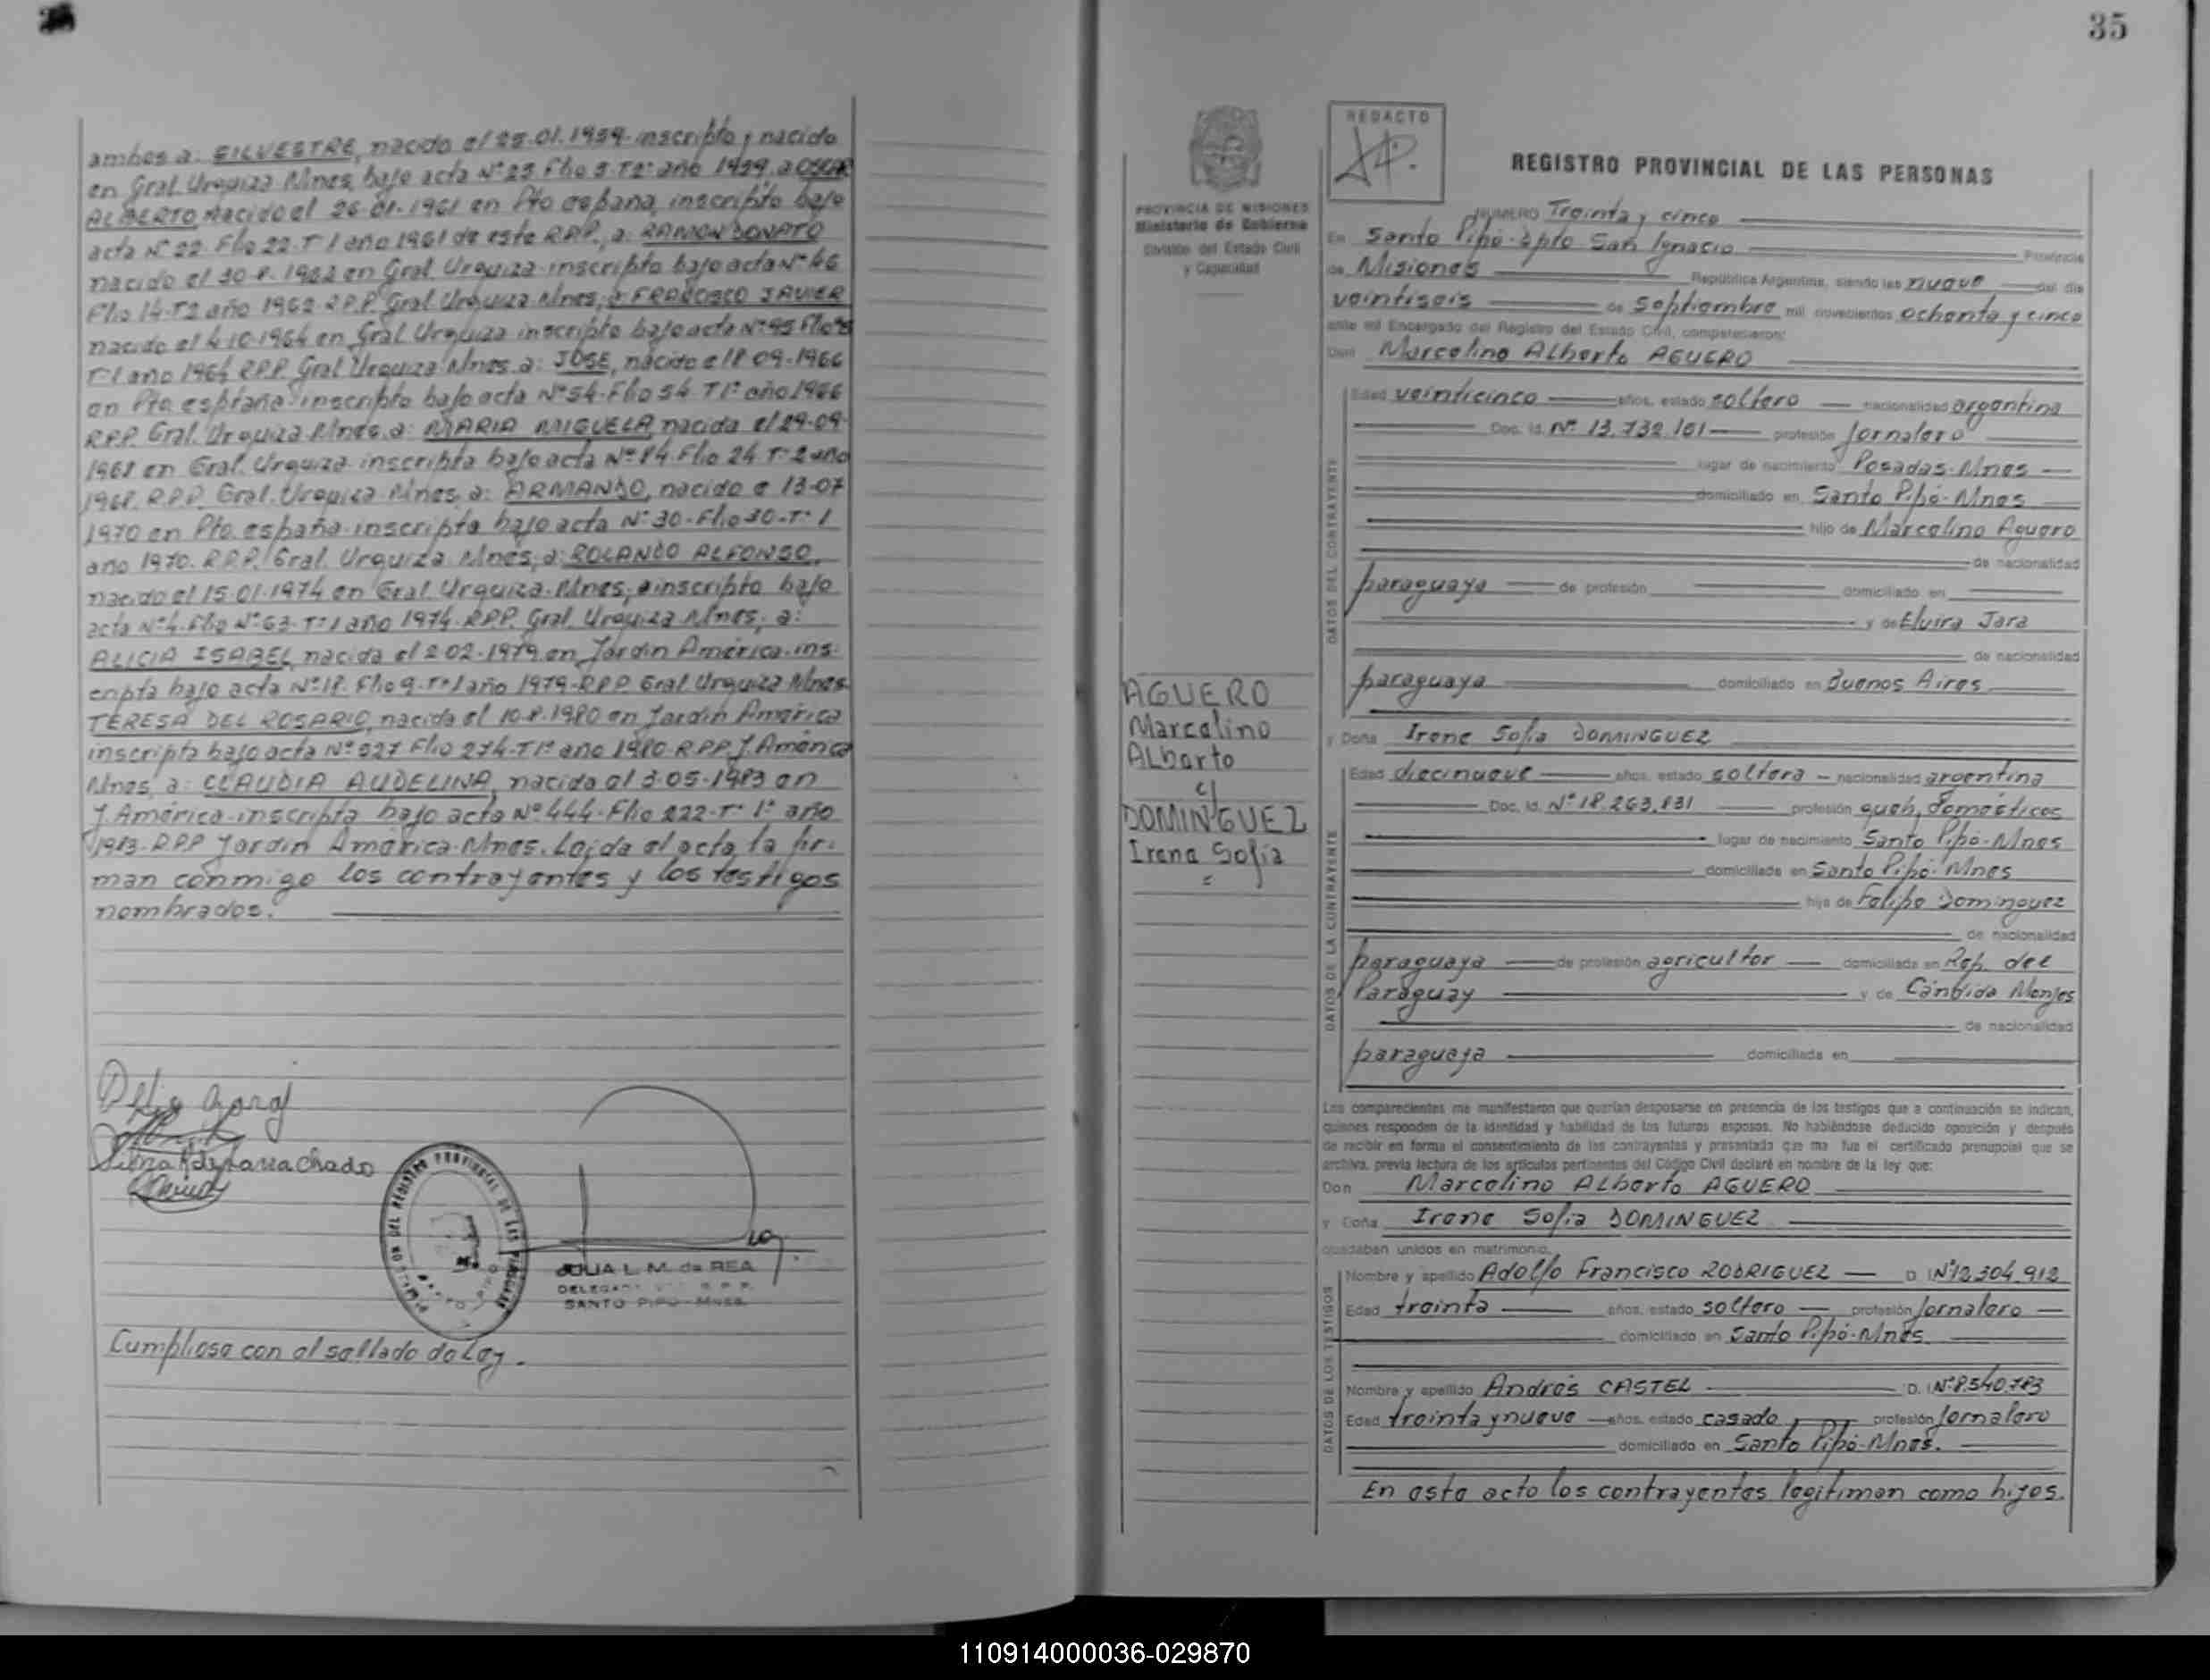 35
ambos a: SILVESTRE, nacido el 25.01.1959 inscripto y nacido
en Gral. Urquiza Mnes, bajo acta Nº 25. Flio 5 T2º año 1959. a OSCAR
ALBERTO nacido el 26-01-1961 en Pto españa, inscripto bajo
acta Nº 22. Flio 22-T 1 año 1961 de este RPP., a: RAMON DONATO
nacido el 30-8-1962 en Gral Urquiza inscripto bajo acta Nº 46
Flio 14-T2 año 1962 R.P.P. Gral Urquiza Mnes, a FRANCISCO JAVIER
nacido el 4-10-1964 en Gral Urquiza inscripto bajo acta Nº 95 Flio
T-1 año 1964 R.P.P. Gral Urquiza Mnes. a: JOSE, nacido el 18-09-1966
en Pto españa inscripto bajo acta Nº 54-Flio 54 T1º año 1966
R.P.P. Gral. Urquiza Mnes. a: MARIA MIGUELA, nacida el 29-09-
1968 en Gral. Urquiza inscripta bajo acta Nº 84 Flio 24 T-2 año
1968. R.P.P. Gral. Urquiza Mnes, a: ARMANDO, nacido e 13-07
1970 en Pto. españa-inscripto bajo acta Nº 30-Flio 30-Tº 1
año 1970. R.P.P. Gral. Urquiza Mnes, a: ROLANDO ALFONSO,
nacido el 15-01-1974 en Gral Urquiza-Mnes, inscripto bajo
acta Nº 4. Flio Nº 63-Tº 1 año 1974-R.P.P. Gral. Urquiza Mnes, a:
ALICIA ISABEL, nacida el 2-02-1979 en Jardin América-ins-
cripta bajo acta Nº 18. Flio 9-Tº 1 año 1979-R.P.P. Gral Urquiza Mnes.
TERESA DEL ROSARIO, nacida el 10-8-1980 en Jardin América
inscripta bajo acta Nº 527 Flio 274-T 1º año 1980-R.P.P. J. América
Mnes, a: CLAUDIA AUDELINA, nacida el 3-05-1983 en
J. América-inscripta bajo acta Nº 444-Flio 222-Tº 1º año
1983-R.P.P Jardín América-Mnes. Leída el acta, la fir-
man conmigo los contrayentes y los testigos
nombrados.
REGISTRO PROVINCIAL DE LAS PERSONAS
JULIA L. M. de REA
SANTO PIPO - Mnes.
Cumpliose con el sellado de Ley.
PROVINCIA DE MISIONES
Ministerio de Gobierno
División del Estado Civil
y Capacidad
AGUERO
Marcelino
ALberto
c/
DOMINGUEZ
Irene Sofía
=
REDACTO
REGISTRO PROVINCIAL DE LAS PERSONAS
NUMERO Treinta y cinco
En Santo Pipó-dpto San Ignacio Provincia
de Misiones República Argentina, siendo las nueve del día
veintiseis de Septiembre mil novecientos ochenta y cinco
ante mí Encargado del Registro del Estado Civil, comparecieron:
Don Marcelino ALberto AGUERO
DATOS DEL CONTRAYENTE
Edad veinticinco años, estado soltero nacionalidad argentina
Doc. Id. Nº 13.732.161 profesión Jornalero
lugar de nacimiento Posadas-Mnes
domiciliado en Santo Pipó-Mnes
hijo de Marcelino Aguero
de nacionalidad
paraguaya de profesión domiciliado en
y de Elvira Jara
de nacionalidad
paraguaya domiciliado en Buenos Aires
y Doña Irene Sofia DOMINGUEZ
DATOS DE LA CONTRAYENTE
Edad diecinueve años, estado soltera nacionalidad argentina
Doc. Id. Nº 18.263.831 profesión queh. domésticos
lugar de nacimiento Santo Pipó-Mnes
domiciliada en Santo Pipó-Mnes
hija de Felipe Dominguez
de nacionalidad
paraguaya de profesión agricultor domiciliado en Rep. del
Paraguay y de Cándida Monjes
de nacionalidad
paraguaya domiciliada en
Los comparecientes me manifestaron que querían desposarse en presencia de los testigos que a continuación se indican,
quienes responden de la identidad y habilidad de los futuros esposos. No habiéndose deducido oposición y después
de recibir en forma el consentimiento de los contrayentes y presentada que me fue el certificado prenupcial que se
archiva, previa lectura de los artículos pertinentes del Código Civil declaré en nombre de la ley que:
Don Marcelino ALberto AGUERO
y Doña Irene Sofía DOMINGUEZ
quedaban unidos en matrimonio.
DATOS DE LOS TESTIGOS
Nombre y apellido Adolfo Francisco RODRIGUEZ D. I Nº 12.304.912
Edad treinta años, estado soltero profesión Jornalero
domiciliado en Santo Pipó-Mnes
Nombre y apellido Andrés CASTEL D. I Nº 8.540.783
Edad treinta y nueve años, estado casado profesión Jornalero
domiciliado en Santo Pipó-Mnes.
En este acto los contrayentes legitiman como hijos.
110914000036-029870